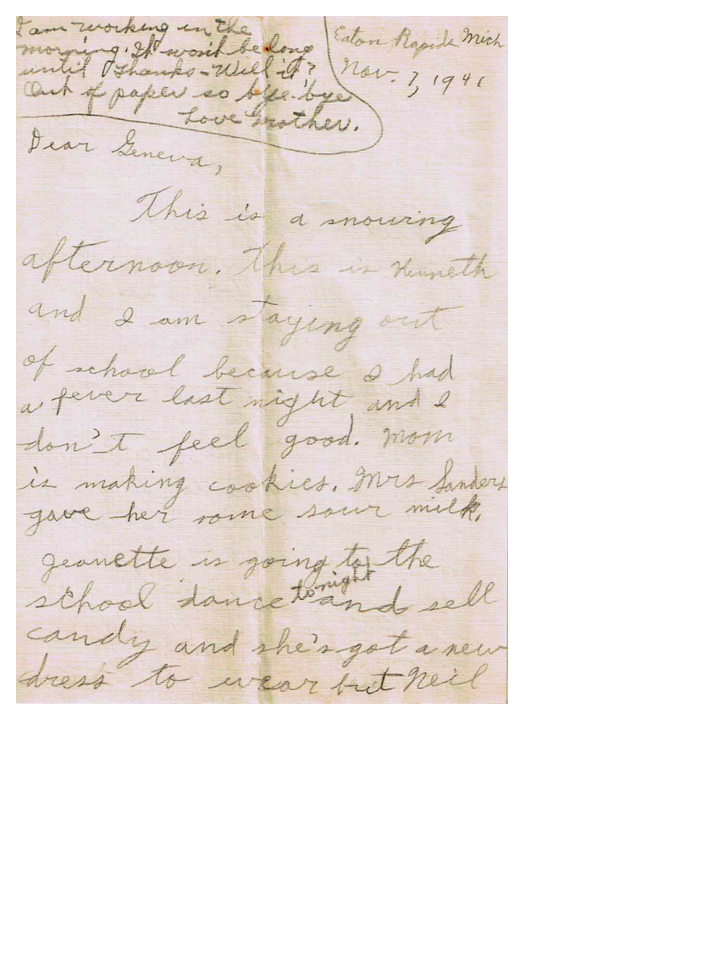 I am working in the
morning. It won't be long
until Thanks - Will it?
Out of paper so bye-bye
Love Brother.
Eaton Rapids Mich
Nov. 7, 1941
Dear Geneva,
This is a snowing
afternoon. This is Kenneth
and I am staying out
of school because I had
a fever last night and I
don't feel good. Mom
is making cookies. Mrs Sanders
gave her some sour milk.
Jeanette is going to the
school dance tonight and sell
candy and she's got a new
dress to wear but Neil